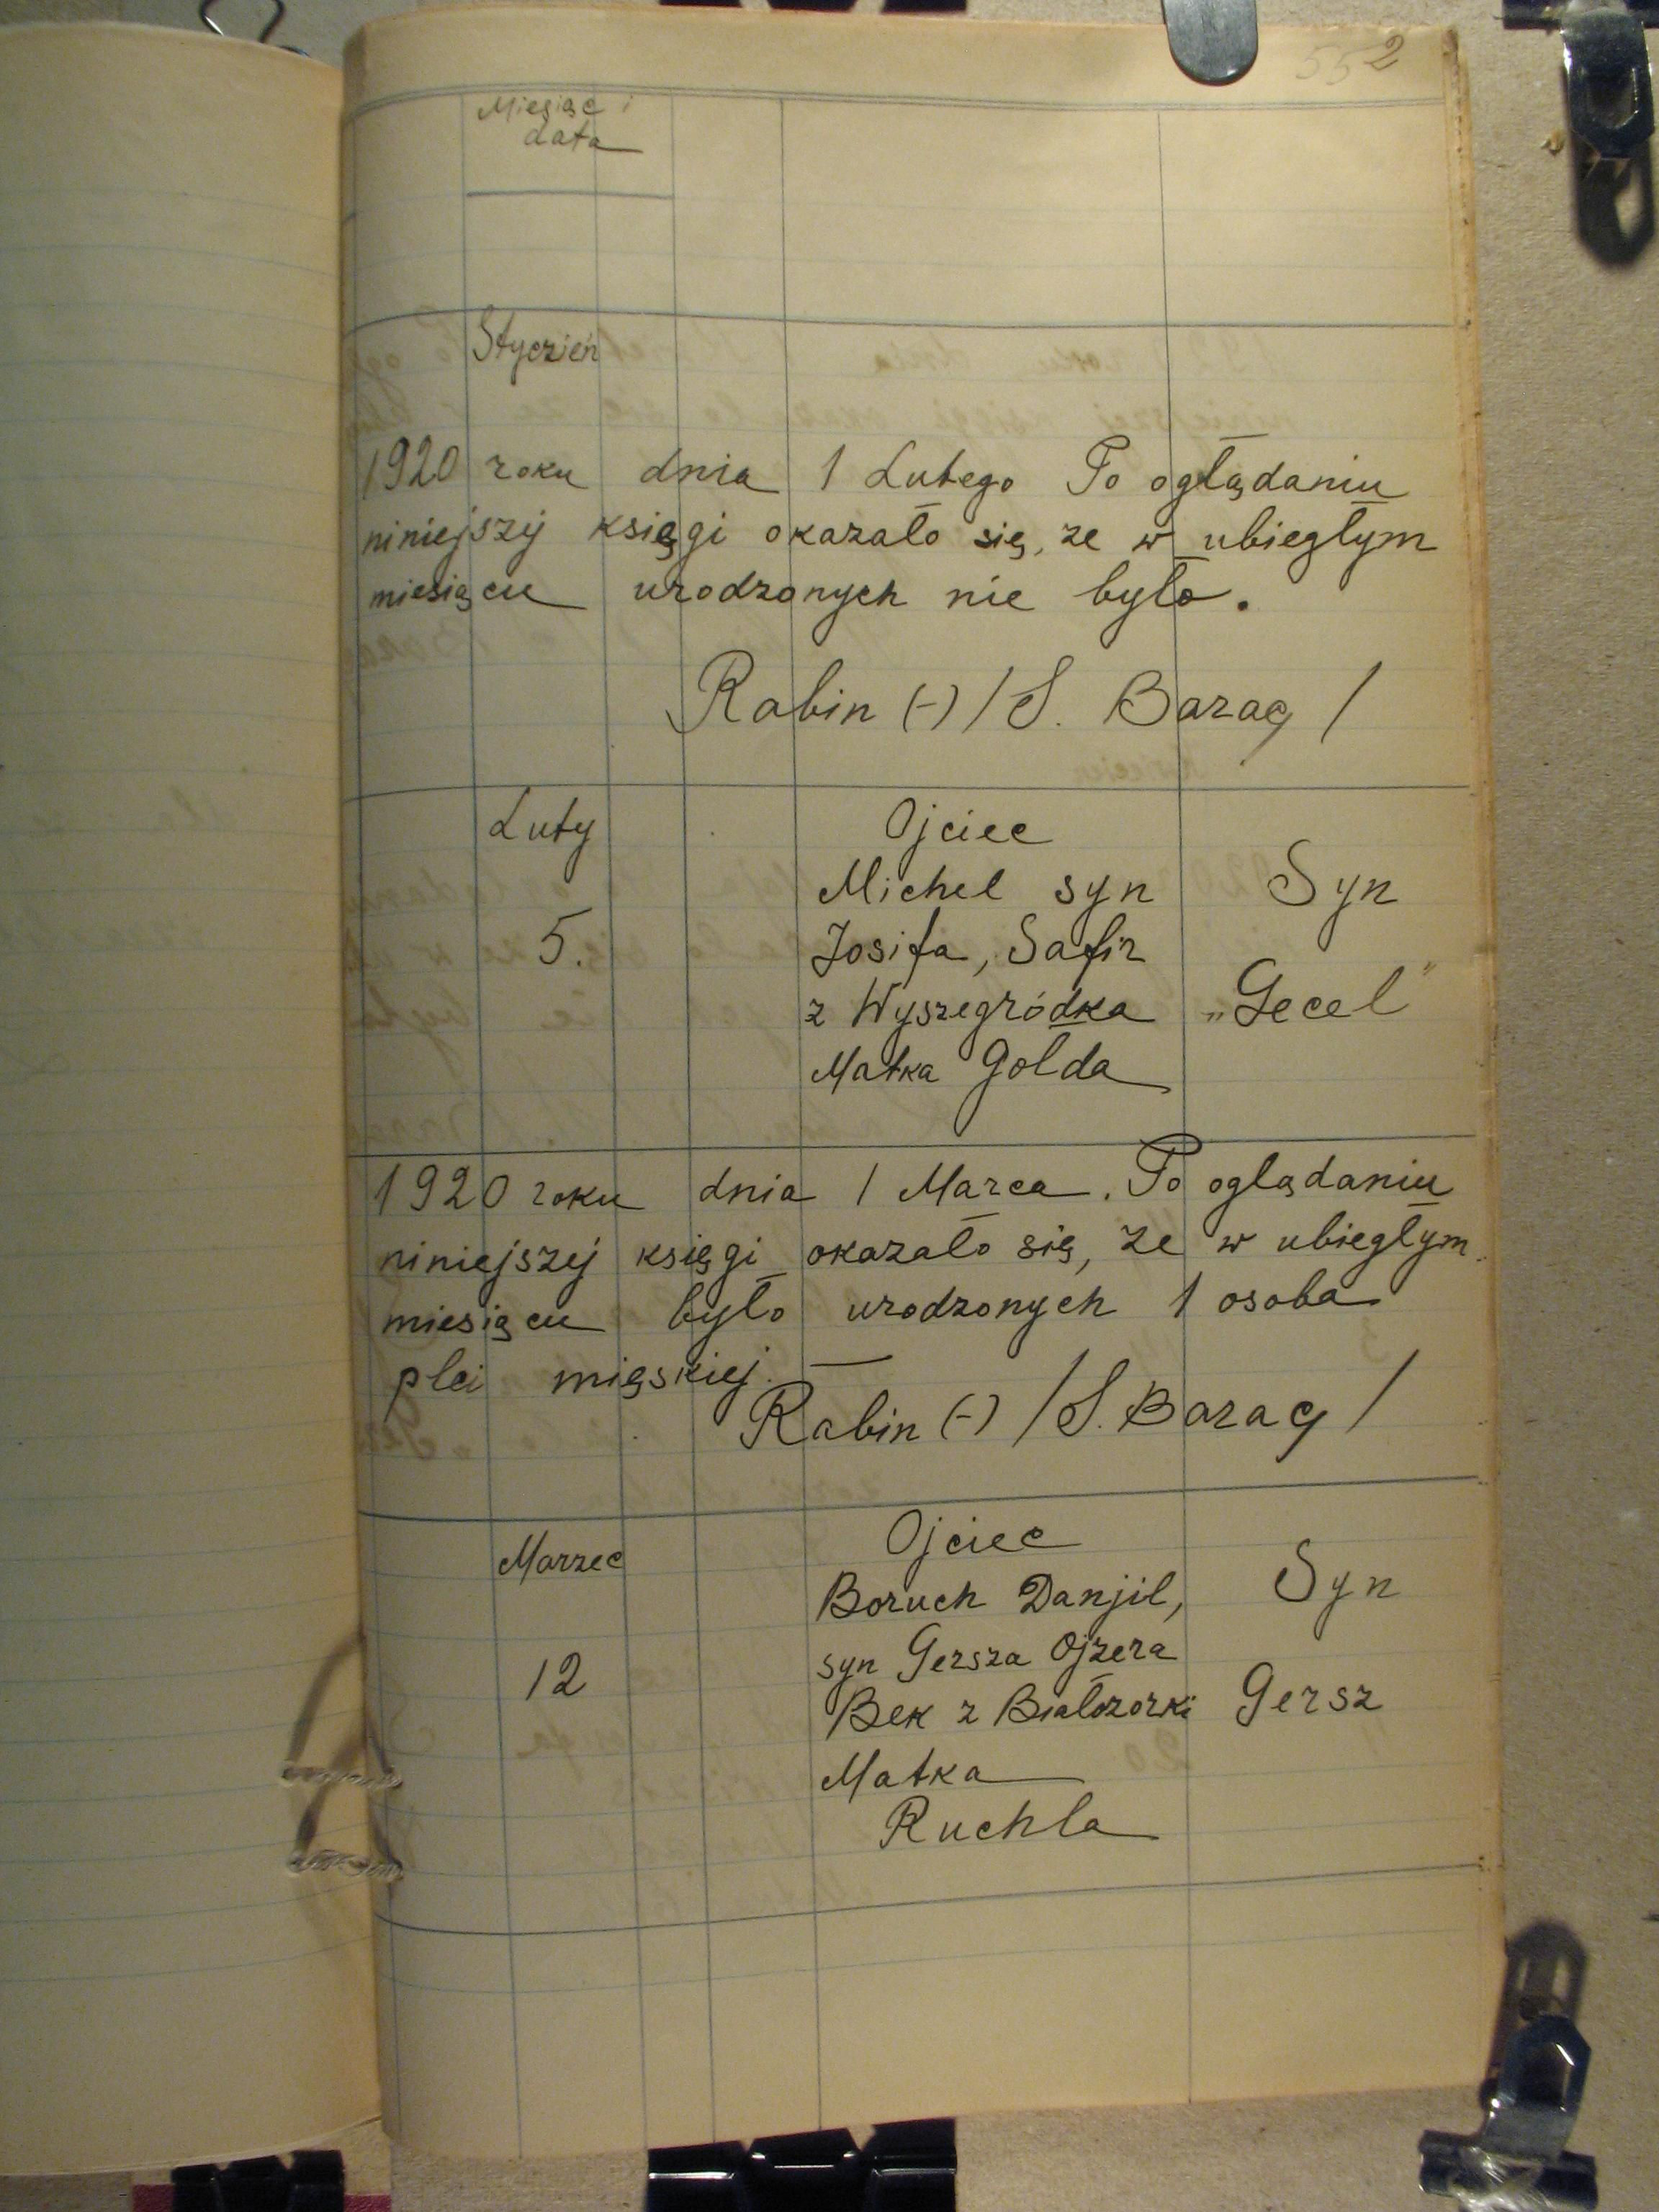 552
Miesiąc i
data
Styczień
1920 roku dnia 1 Lutego Po oglądaniu
niniejszij księgi okazało się, ze w ubiegłym
miesiącu urodzonych nie było.
Rabin (-) / S. Barac /
Luty
Ojciec
Michel syn Syn
5. Josifa, Safir
z Wyszegródka „Gecel”
Matka Golda
1920 roku dnia 1 Marca. Po oglądaniu
niniejszej księgi okazało się, ze w ubiegłym
miesiącu było urodzonych 1 osoba
plci mięskiej. —
Rabin (-) / S. Barac /
Marzec
Ojciec
Boruch Danjil, Syn
syn Gersza Ojzera
12
Bek z Białozorki Gersz
Matka
Ruchla